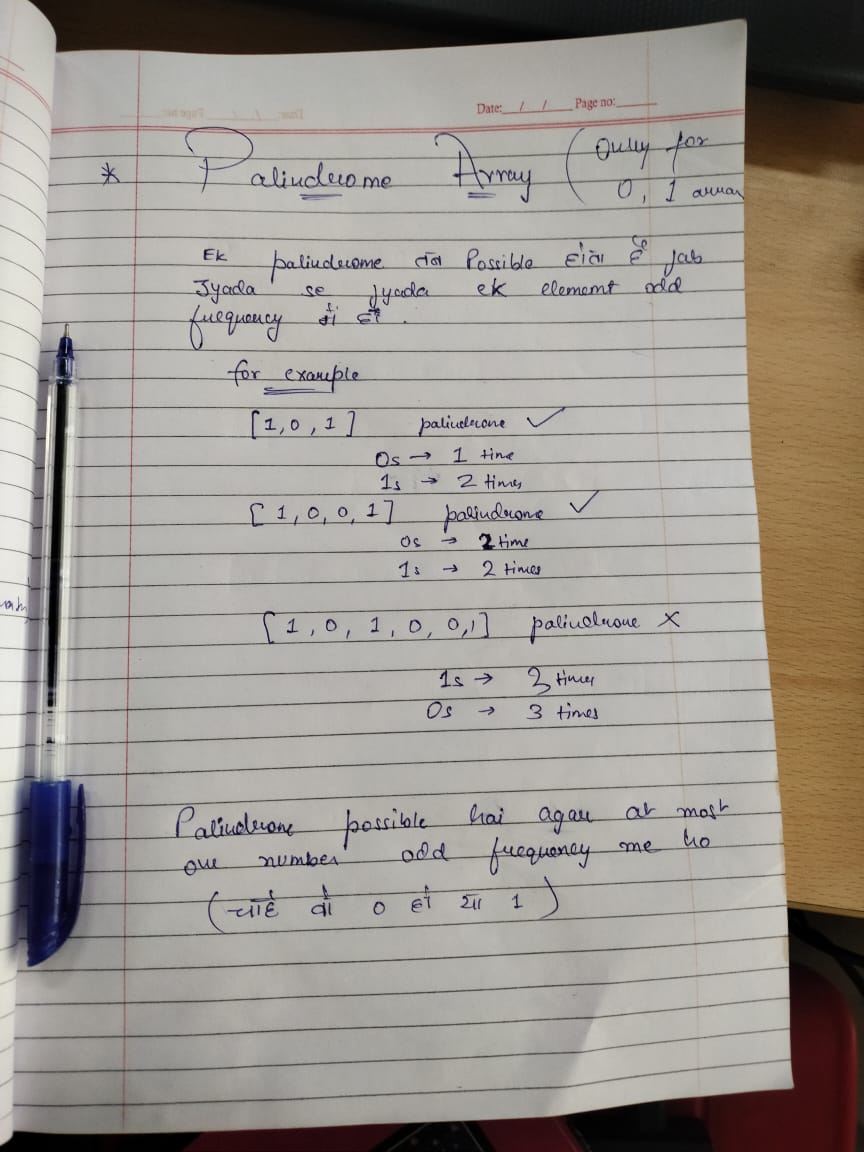 Date: __/__/__ Page no:____
* Palindrome Array (Only for
0, 1 array
Ek palindrome तब Possible होता है jab
Jyada se jyada ek element odd
frequency में हो.
for example
[1,0,1] palindrome ✓
0s → 1 time
1s → 2 times
[1,0,0,1] palindrome ✓
0s → 2 time
1s → 2 times
[1, 0, 1, 0, 0,1] palindrome ×
1s → 3 times
0s → 3 times
Palindrome possible hai agar at most
one number odd frequency me ho
(चाहे वो 0 हो या 1)